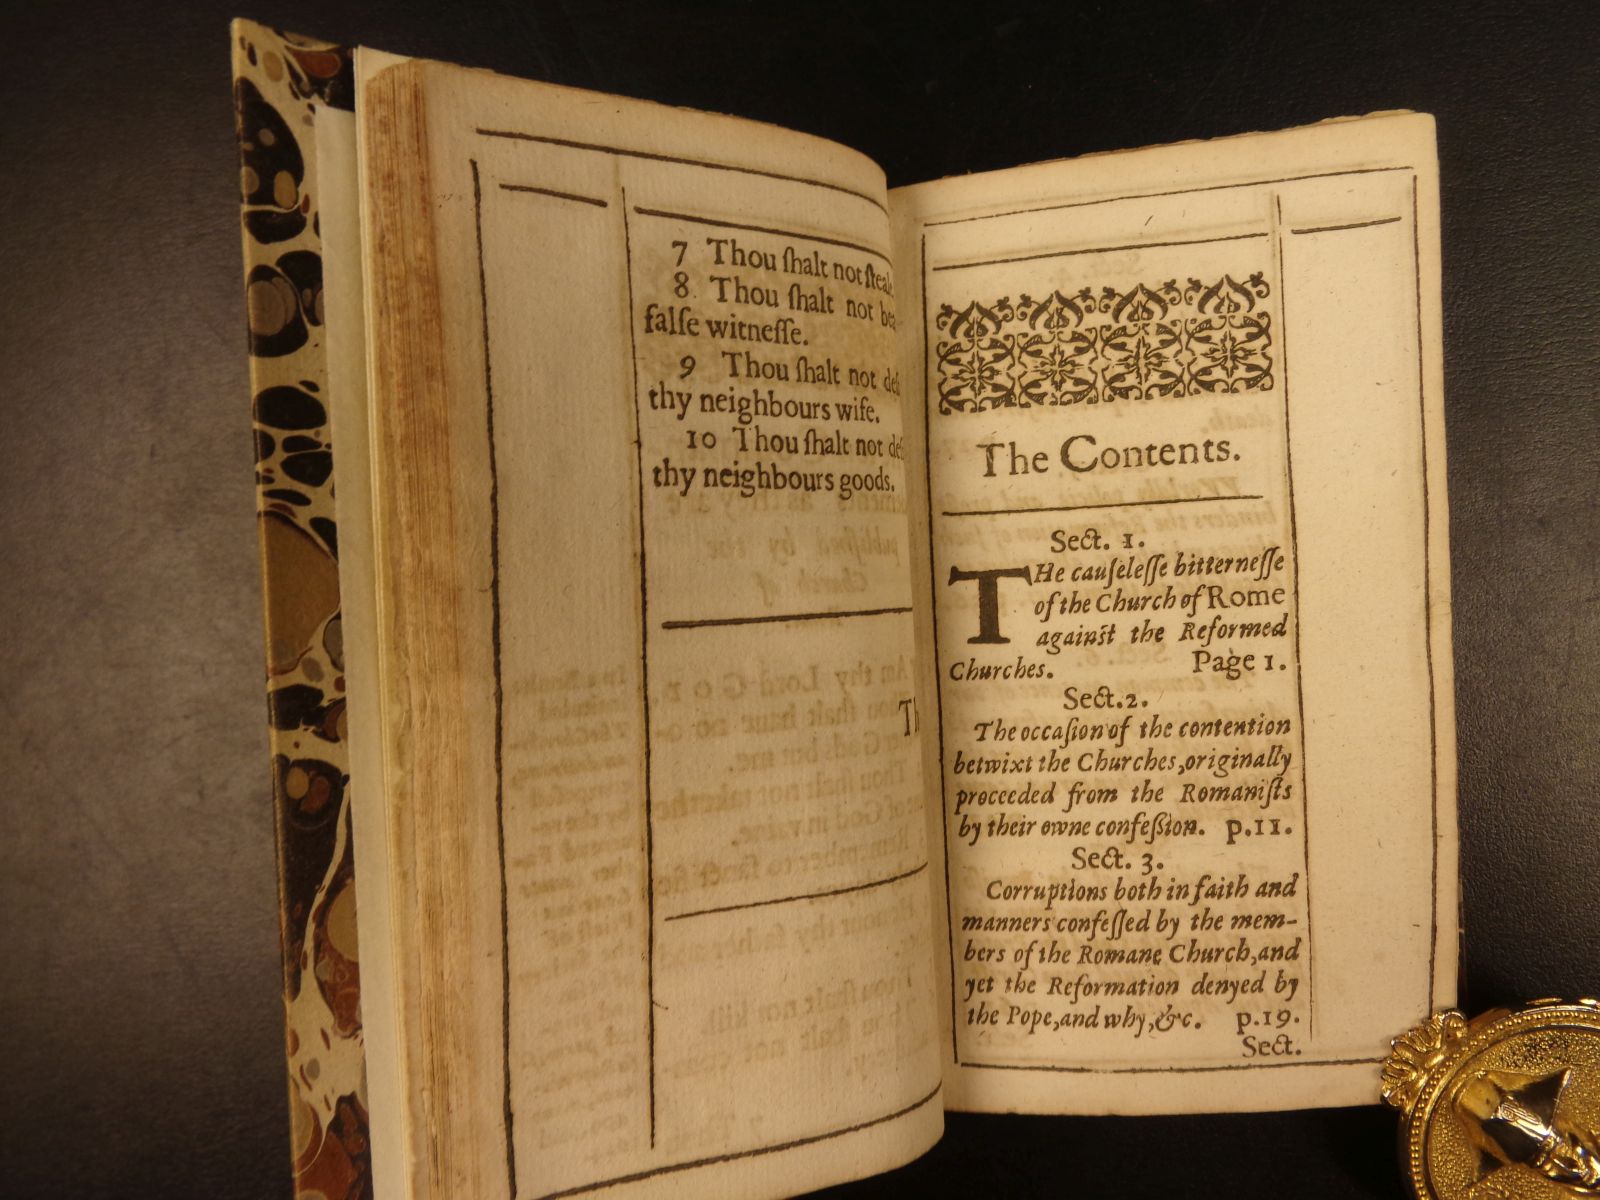 7 Thou ſhalt not ſteale.
8. Thou ſhalt not
falſe witneſſe.
9 Thou ſhalt not
thy neighbours wife.
10 Thou ſhalt not
thy neighbours goods.
The Contents.
Sect. 1.
THe cauſeleſſe bitterneſſe
of the Church of Rome
againſt the Reformed
Churches. Page 1.
Sect. 2.
The occaſion of the contention
betwixt the Churches, originally
proceeded from the Romaniſts
by their owne confeſsion. p.11.
Sect. 3.
Corruptions both in faith and
manners confeſſed by the mem-
bers of the Romane Church, and
yet the Reformation denyed by
the Pope, and why, &c. p.19.
Sect.